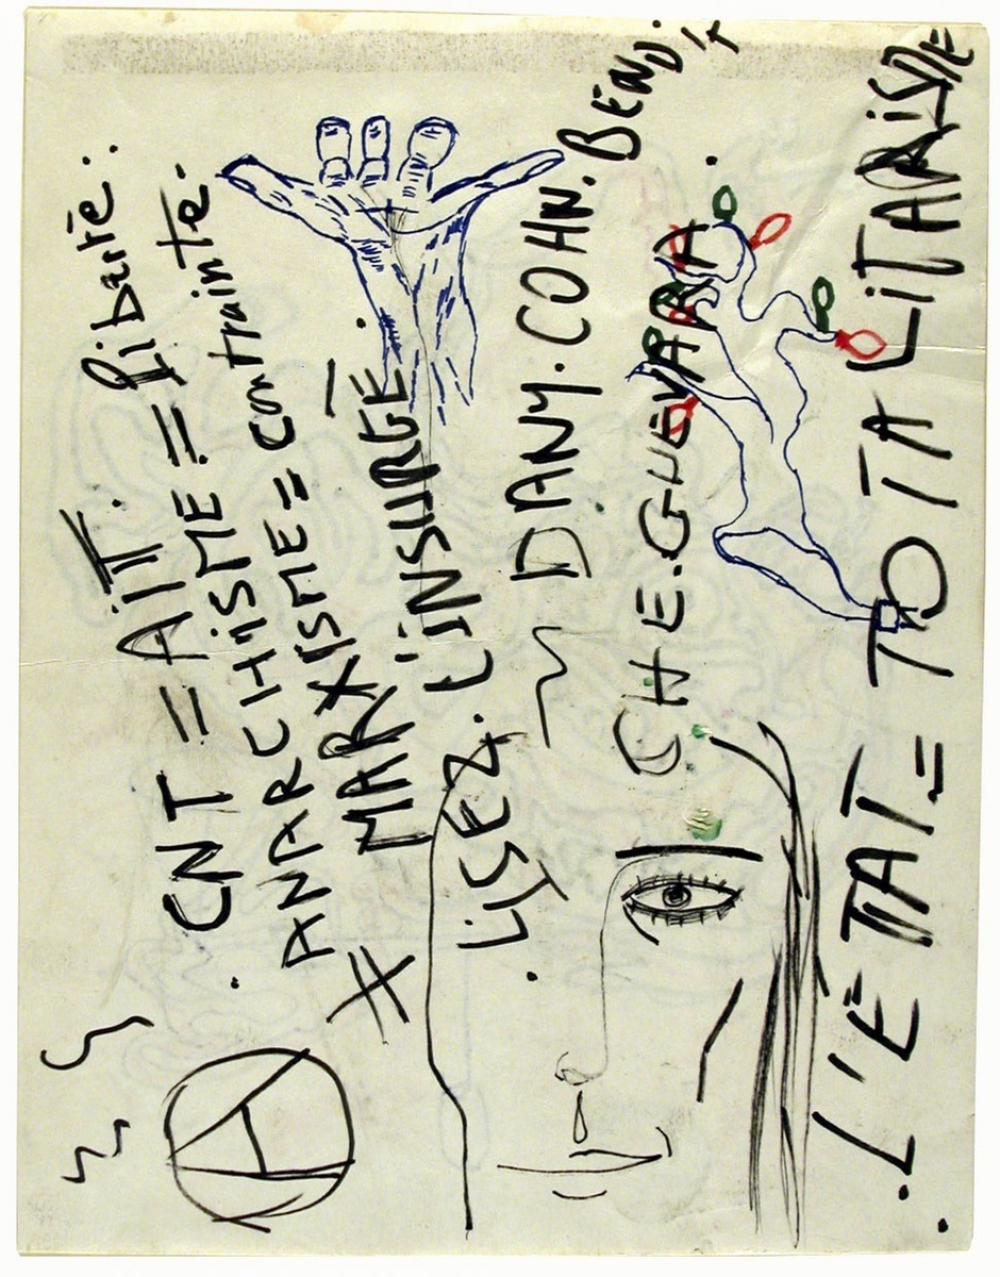 CNT = AiT.
ANARCHiSME = liberté.
≠ MARXiSME = contrainte.
LiSEZ. L'iNSURGÉ
DANY.COHN.BEND.iT
CHE.GHEVARA.
.L'ÉTAT = TOTALiTARiSME
A